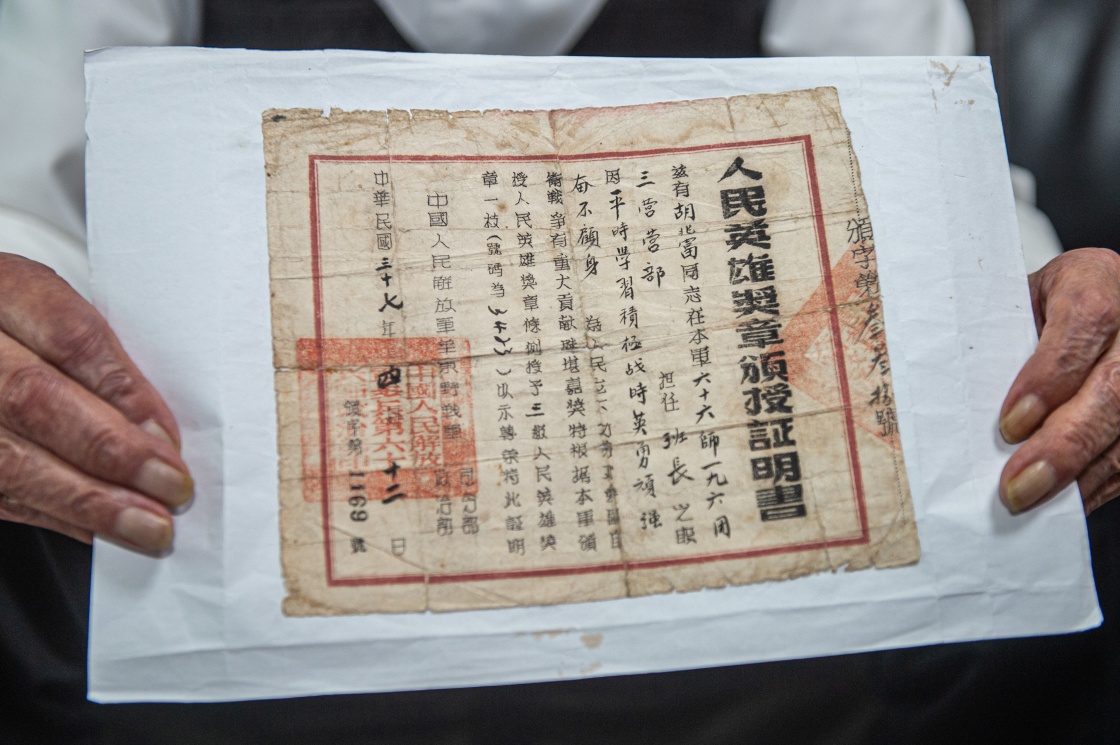 人民英雄奬章頒授証明書
茲有胡兆富同志在本軍六十六师一九六团
三营营部 担任 班長 之职
因平時学習積極战時英勇頑强
奋不顧身 為人民立
衛戰爭有重大貢献殊堪嘉奬特根据本軍頒
授人民英雄奬章條例授予三級人民英雄奬
章一枚(號码為)以示轉榮特此証明
中國人民解放軍華東野戰軍 司令部
政治部
中華民國三十七年四月十二日
頒字第1169號
頒字第叁叁號
中國人民解放